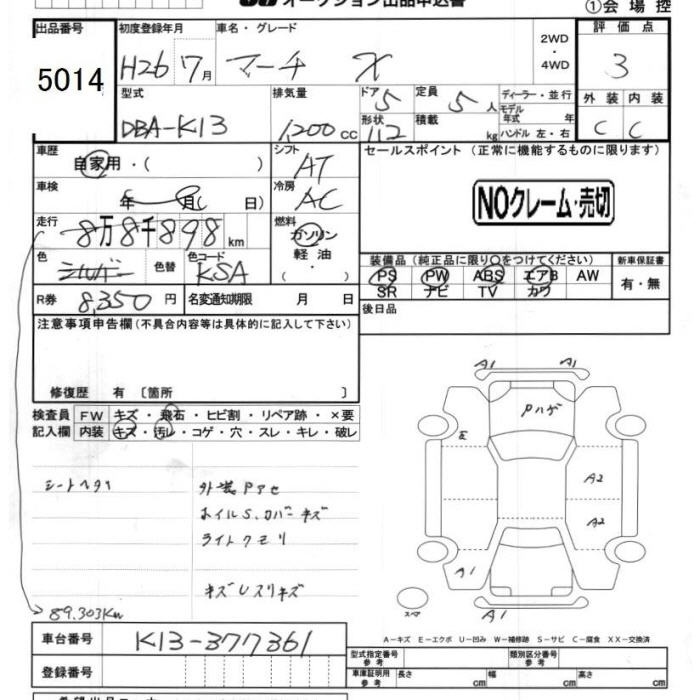 オークション出品申込書
①会場控
出品番号 初度登録年月 車名・グレード 評価点
5014 H26 7月 マーチ X 2WD・4WD 3
型式 排気量 ドア 5 定員 5人 ディーラー・並行 外装 内装
DBA-K13 1,200cc 形状 積載 kg モデル年式 年 C C
ハンドル 左・右
車歴 シフト セールスポイント (正常に機能するものに限ります)
自家用・( ) AT
車検 年 月( 日) 冷房 AC NOクレーム・売切
走行 8万8千898km 燃料 ガソリン・軽油・
色 シルバー 色替 色コード KSA 装備品 (純正品に限り○をつけてください) 新車保証書
PS PW ABS エアB AW 有・無
SR ナビ TV カワ
R券 8,350円 名変通知期限 月 日 後日品
注意事項申告欄 (不具合内容等は具体的に記入して下さい)
修復歴 有 〔箇所 〕
検査員 FW キズ・飛石・ヒビ割・リペア跡・×要
記入欄 内装 キズ・汚レ・コゲ・穴・スレ・キレ・破レ
A1 A1
Pハゲ
A2
A2
A1
A1
外装Pアセ
ホイルS、カバーキズ
ライトクモリ
キズUスリキズ
スペア
89.303Km
車台番号 K13-377361
登録番号
A-キズ E-エクボ U-凹み W-補修跡 S-サビ C-腐食 XX-交換済
型式指定番号 参考 類別区分番号 参考
車庫証明用 参考 長さ cm 幅 cm 高さ cm